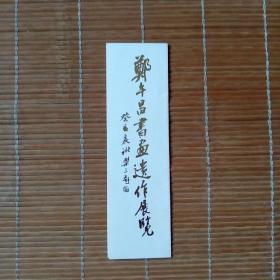 鄭午昌書畫遺作展覽
癸亥